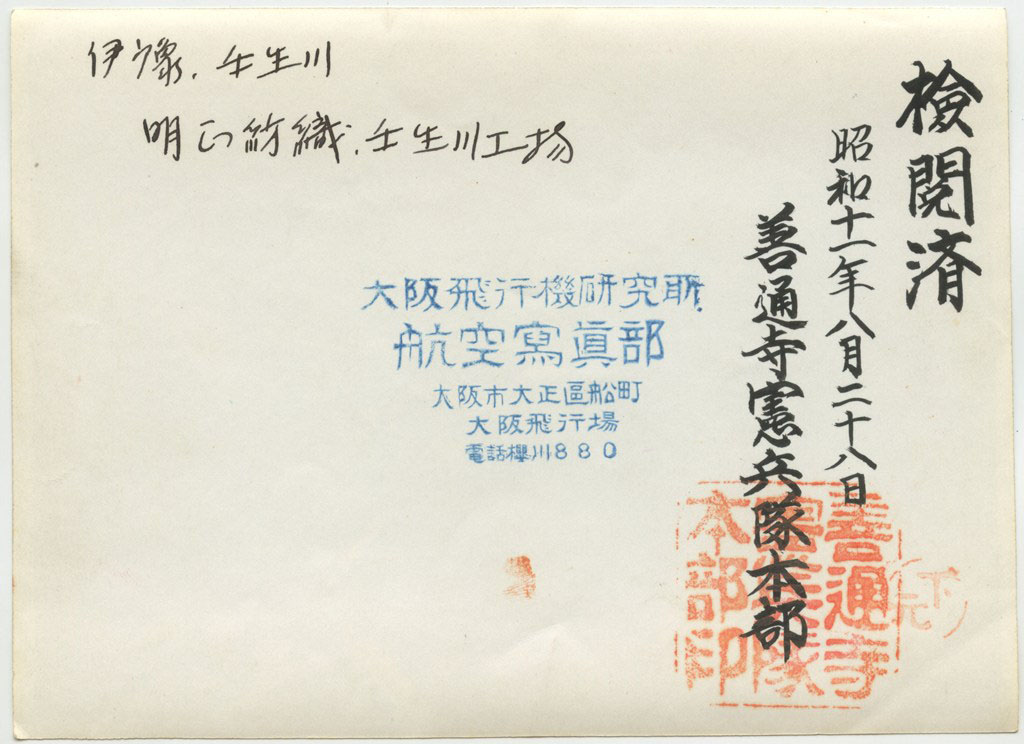 伊豫、壬生川
明正紡織、壬生川工場
檢閲済
昭和十一年八月二十八日
善通寺憲兵隊本部
大阪飛行機研究所
航空寫眞部
大阪市大正區船町
大阪飛行場
電話櫻川880
善通寺
憲兵隊
本部印